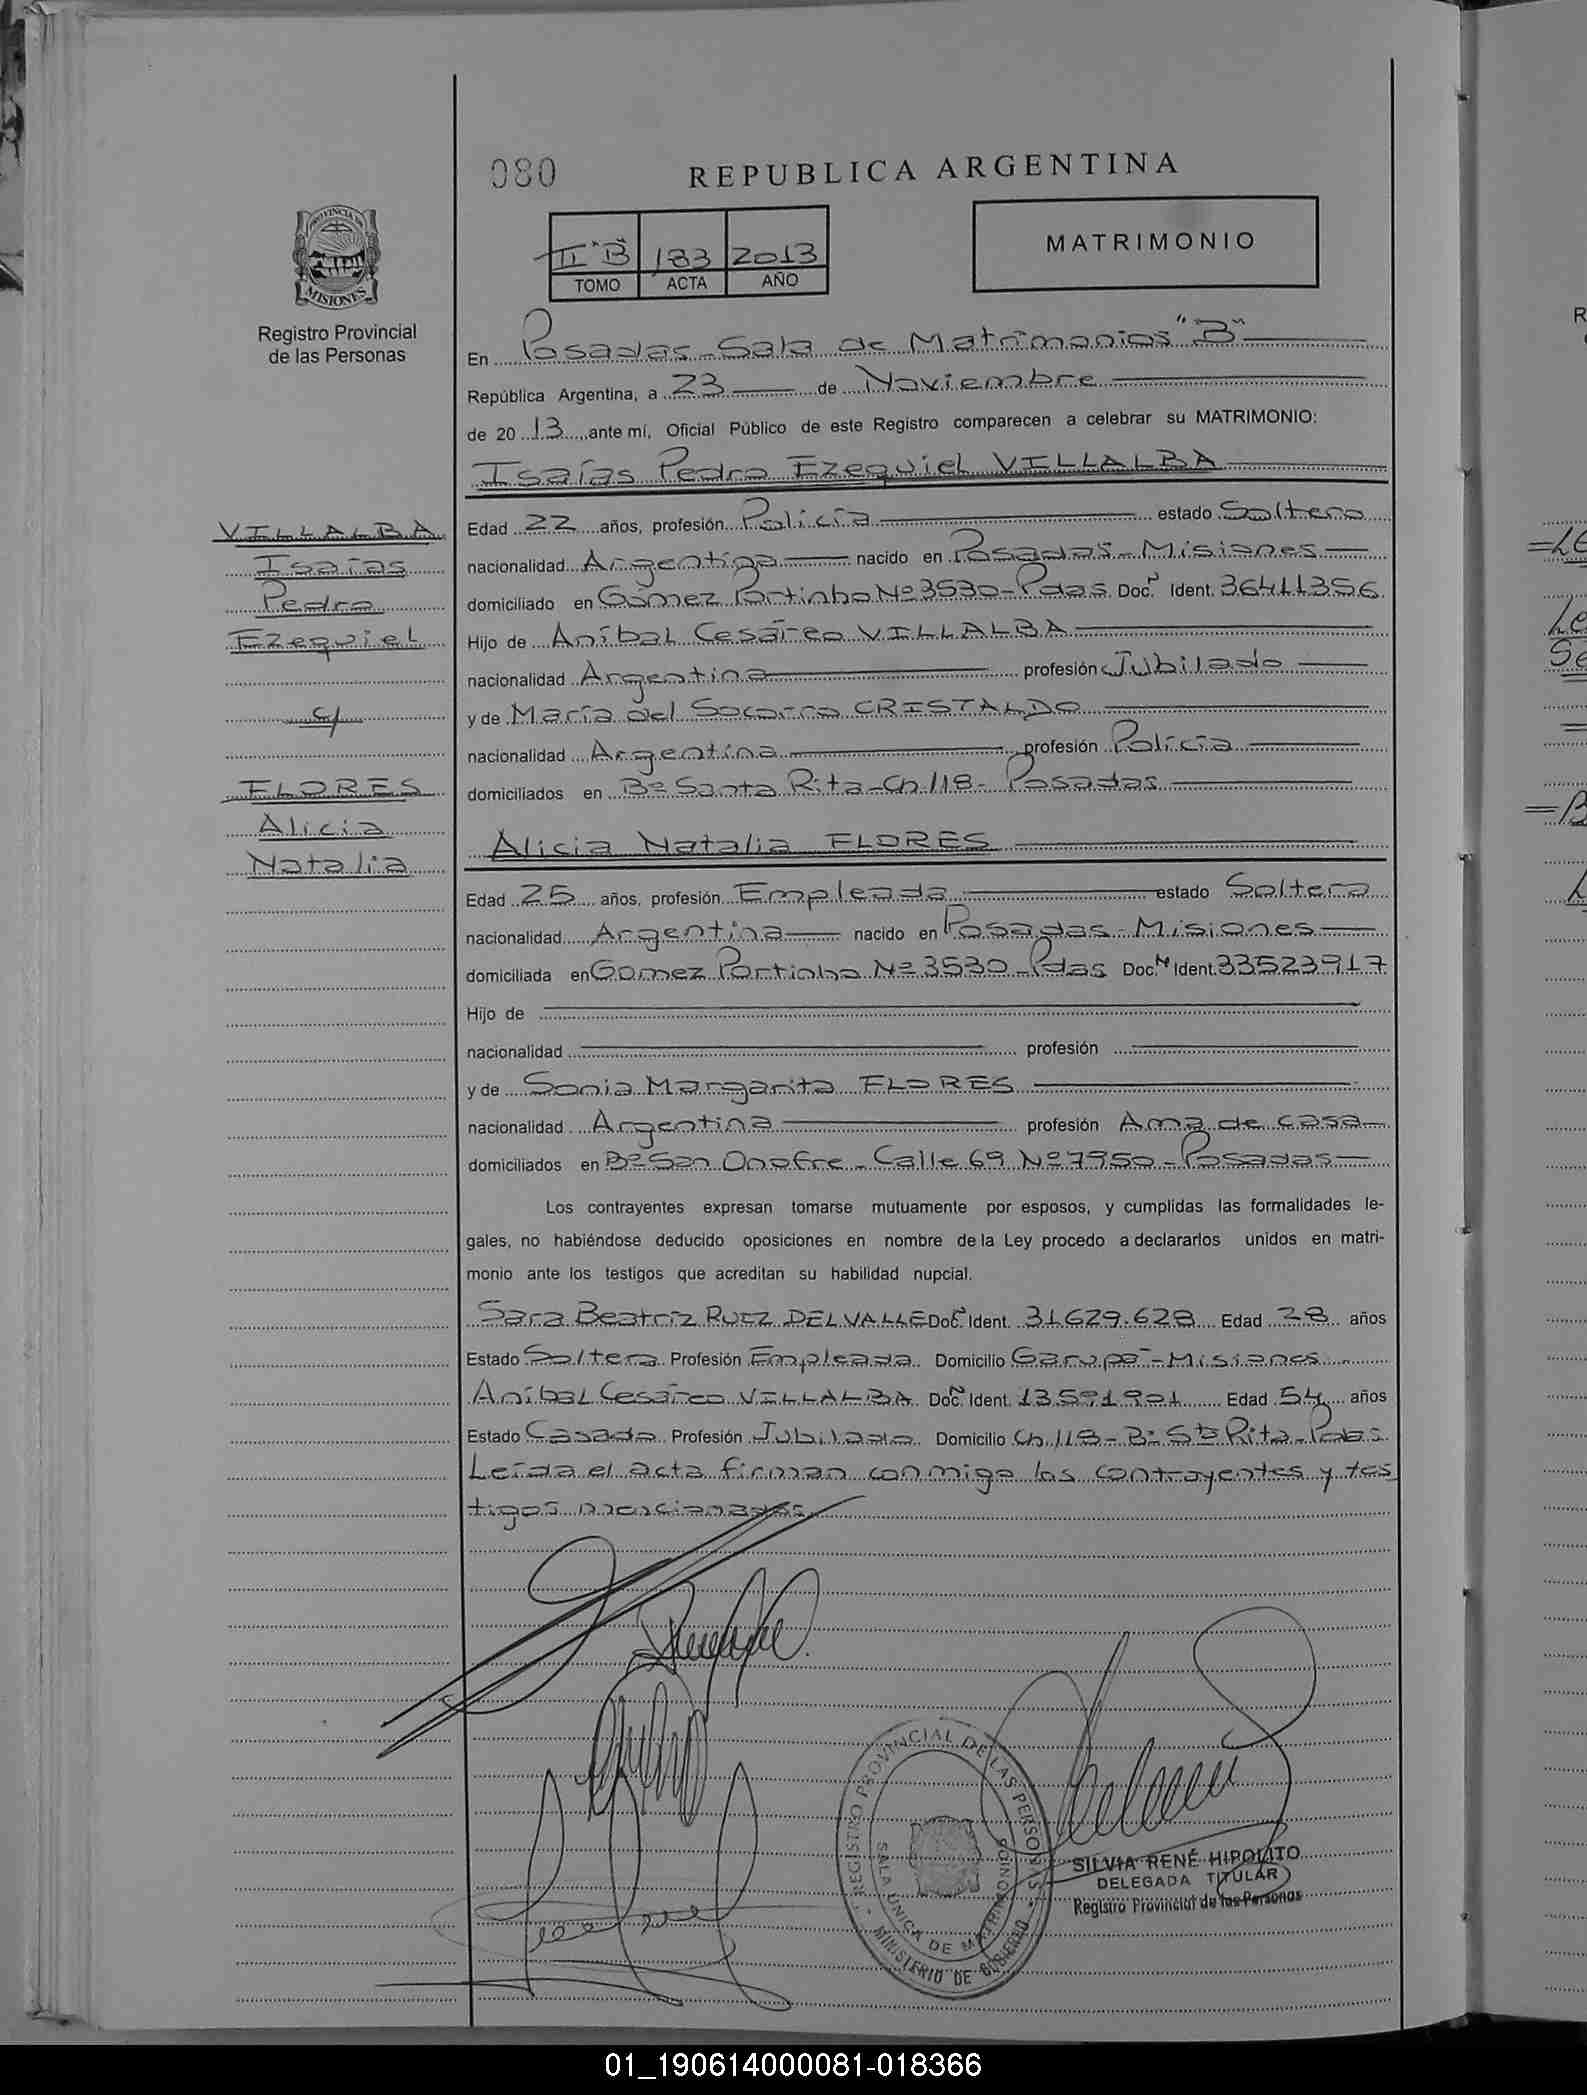 080
REPUBLICA ARGENTINA
PROVINCIA DE
MISIONES
Registro Provincial
de las Personas
II "B" 183 2013
TOMO ACTA AÑO
MATRIMONIO
En Posadas - Sala de Matrimonios "B"
República Argentina, a 23 de Noviembre
de 20 13 ante mí, Oficial Público de este Registro comparecen a celebrar su MATRIMONIO:
Isaías Pedro Ezequiel VILLALBA
VILLALBA
Isaías
Pedro
Ezequiel
c/
FLORES
Alicia
Natalia
Edad 22 años, profesión Policía estado Soltero
nacionalidad Argentina nacido en Posadas - Misiones
domiciliado en Gómez Portinho Nº 3530 - Pdas. Doc. Ident. 36411356
Hijo de Aníbal Cesáreo VILLALBA
nacionalidad Argentina profesión Jubilado
y de María del Socorro CRISTALDO
nacionalidad Argentina profesión Policía
domiciliados en Bº Santa Rita - Ch. 118 - Posadas
Alicia Natalia FLORES
Edad 25 años, profesión Empleada estado Soltera
nacionalidad Argentina nacido en Posadas - Misiones
domiciliada en Gomez Portinho Nº 3530 - Pdas Doc. Ident. 33523917
Hijo de
nacionalidad profesión
y de Sonia Margarita FLORES
nacionalidad Argentina profesión Ama de casa
domiciliados en Bº San Onofre - Calle 69 Nº 7950 - Posadas
Los contrayentes expresan tomarse mutuamente por esposos, y cumplidas las formalidades le-
gales, no habiéndose deducido oposiciones en nombre de la Ley procedo a declararlos unidos en matri-
monio ante los testigos que acreditan su habilidad nupcial.
Sara Beatriz RUIZ DEL VALLE Doc. Ident. 31629.628 Edad 28 años
Estado Soltera Profesión Empleada Domicilio Garupá - Misiones
Aníbal Cesáreo VILLALBA Doc. Ident. 13591901 Edad 54 años
Estado Casado Profesión Jubilado Domicilio Ch. 118 - Bº Sta Rita - Pdas.
Leída el acta firman conmigo los contrayentes y tes
tigos mencionados.
REGISTRO PROVINCIAL DE LAS PERSONAS
SALA UNICA DE MATRIMONIOS
MINISTERIO DE GOBIERNO
SILVIA RENÉ HIPOLITO
DELEGADA TITULAR
Registro Provincial de las Personas
01_190614000081-018366